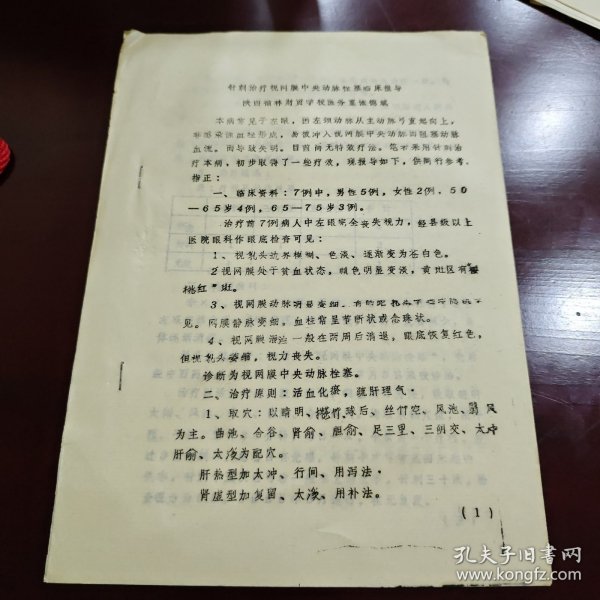 针刺治疗视网膜中央动脉栓塞临床报导
陕西榆林财贸学校医务室
本病常见于左眼，因左颈动脉从主动脉弓直起向上，
血栓形成，易被冲入视网膜中央动脉而阻塞动脉
血流。而导致失明。目前尚无特效疗法。笔者采用针刺治
疗本病，初步取得了一些疗效，现报导如下，供同行参考、
指正：
一、临床资料：7例中，男性5例，女性2例，50
—65岁4例，65—75岁3例。
治疗前7例病人中左眼完全丧失视力，经县级以上
医院眼科作眼底检查可见：
1、视乳头边界模糊、色淡、逐渐变为苍白色。
2视网膜处于贫血状态，颜色明显变淡，黄斑区有"樱
桃红"斑。
3、视网膜动脉明显变细，
见。网膜静脉变细，血柱常呈节断状或念珠状。
4、视网膜混浊一般在两周后消退，眼底恢复红色，
但视乳头萎缩，视力丧失。
诊断为视网膜中央动脉栓塞。
二、治疗原则：活血化瘀，疏肝理气·
1、取穴：以睛明、攒竹、球后、丝竹空、风池、翳风
为主。曲池、合谷、肾俞、胆俞、足三里、三阴交、太冲
肝俞、太溪为配穴。
肝热型加太冲、行间、用泻法·
肾虚型加复溜、太溪、用补法。
(1)
孔夫子旧书网
www.kongfz.com